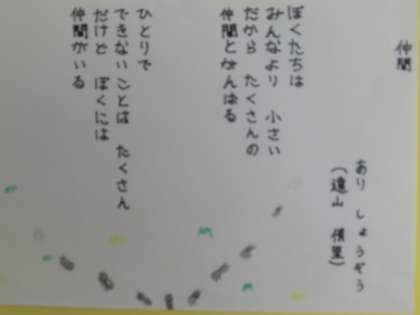 仲間
あり しょうぞう
ぼくたちは
みんなより 小さい
だから たくさんの
仲間とがんばる
ひとりで
できないことは たくさん
だけど ぼくには
仲間がいる